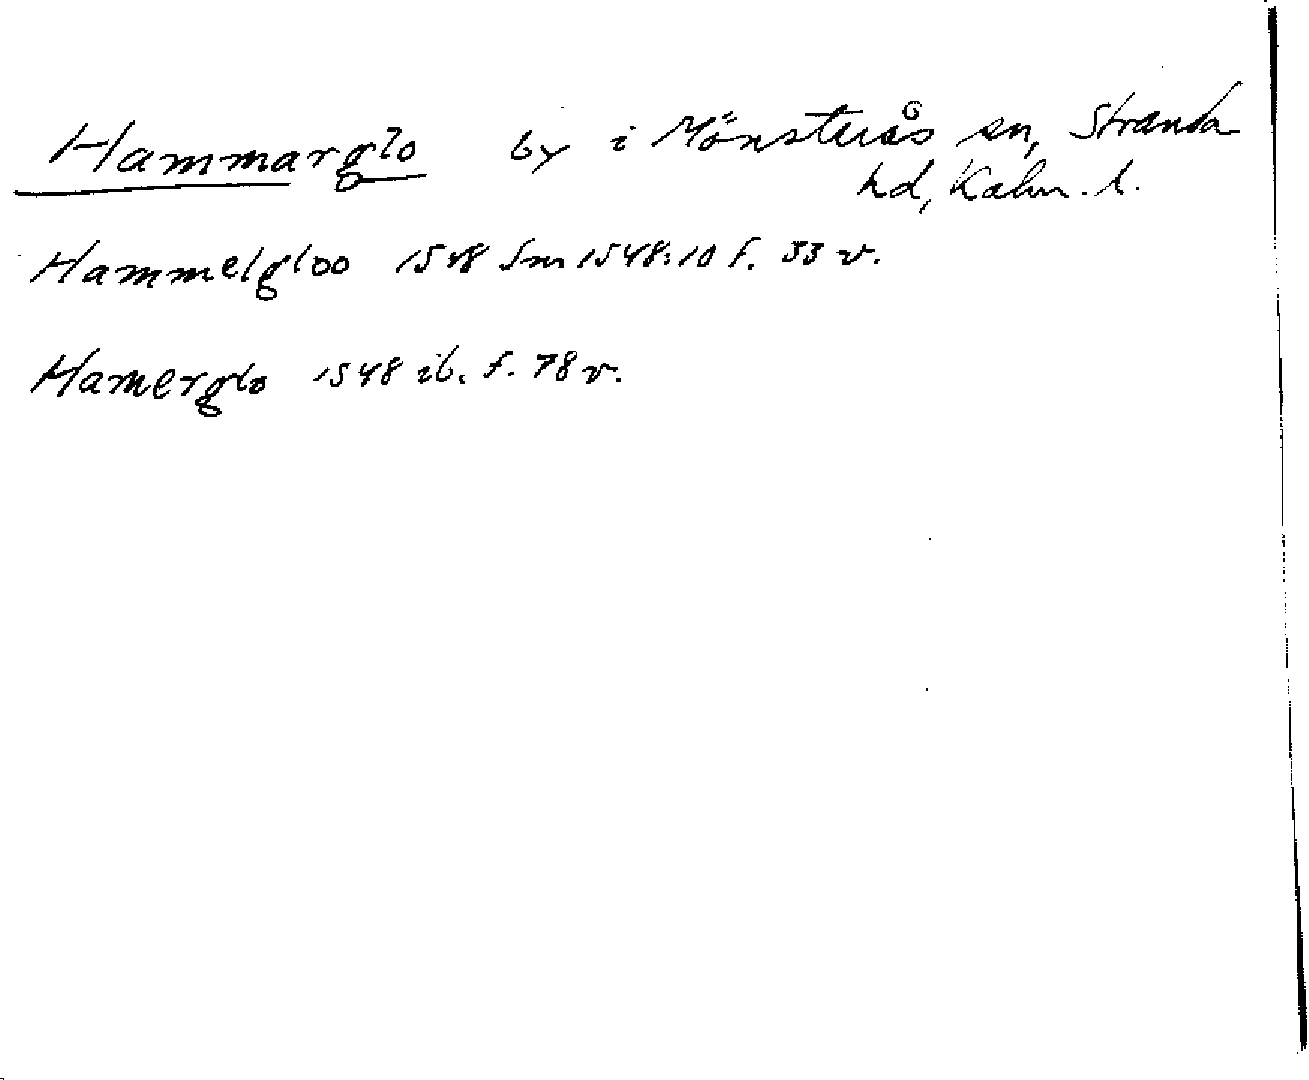 Hammarglo by i Mönsterås sn, Stranda
hd, Kalm. l.
Hammelgloo 1548 Sm 1548:10 f. 33 v.
Hamerglo 1548 ib. f. 78 v.